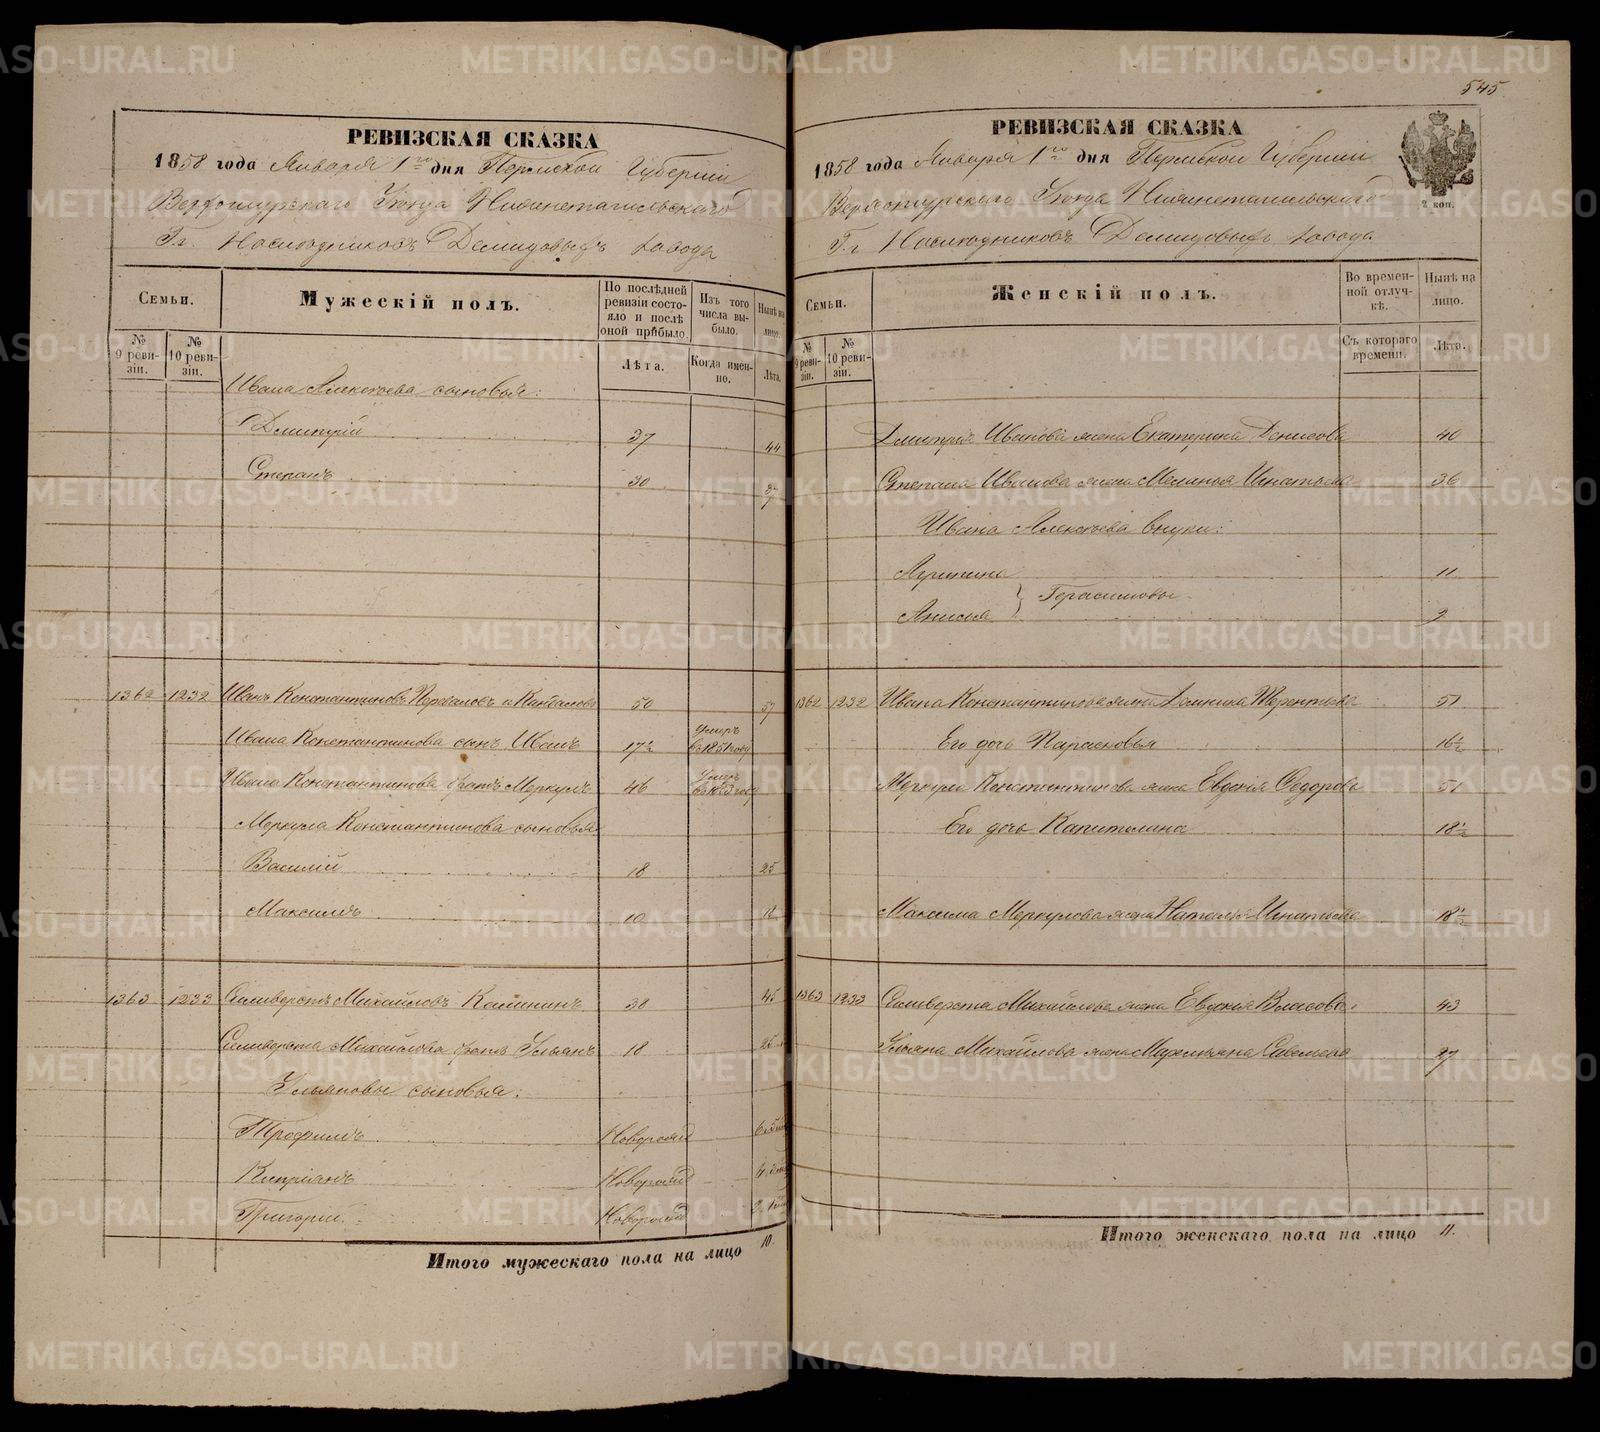 545
РЕВИЗСКАЯ СКАЗКА
1858 года Января 1го дня Пермской Губерніи
Верхотурскаго Уѣзда Нижнетагильскаго
Гг. Наслѣдниковъ Демидовыхъ завода
Семьи.
Мужескій полъ.
По послѣдней ревизіи состояло и послѣ оной прибыло.
Изъ того числа выбыло.
Нынѣ на лицо.
№ 9 ревизіи.
№ 10 ревизіи.
Лѣта.
Когда именно.
Лѣта.
Ивана Алексѣева сыновья:
Дмитрій 37 44
Степанъ 30 37
1362 1232 Иванъ Константиновъ 50 57
Ивана Константинова сынъ Иванъ 17½ Умеръ въ 1851 году
Ивана Константинова братъ Меркулъ 46 Умеръ
Меркула Константинова сыновья
Василій 18 25
Максимъ 10
1363 1233 Селиверстъ Михайловъ Калининъ 38 45
Селиверста Михайлова братъ Ульянъ 18
Ульяновы сыновья:
Трофимъ Новорожд
Кипріянъ Новорожд
Григорій Новорожд
Итого мужескаго пола на лицо 10.
РЕВИЗСКАЯ СКАЗКА
1858 года Января 1го дня Пермской Губерніи
Верхотурскаго Уѣзда Нижнетагильскаго
Гг Наслѣдниковъ Демидовыхъ завода
2 коп.
Семьи.
Женскій полъ.
Во временной отлучкѣ.
Нынѣ на лицо.
№ 9 ревизіи.
№ 10 ревизіи.
Съ котораго времени.
Лѣта.
Дмитрія Иванова жена Екатерина Денисова 40
Степана Иванова жена Игнатьева 36
Ивана Алексѣева внуки:
Агрипина 11
Герасимовы
Анисья 9
1362 1232 Ивана Константинова жена Домника Терентьева 51
Его дочь Парасковья 16½
Меркула Константинова жена Евдокія Федорова 51
Его дочь Капитолина 18½
Максима Меркулова жена Наталья Игнатьева 18½
1363 1233 Селиверста Михайлова жена Евдокія Власова 43
Ульяна Михайлова жена Савельева 27
Итого женскаго пола на лицо 11.
METRIKI.GASO-URAL.RU